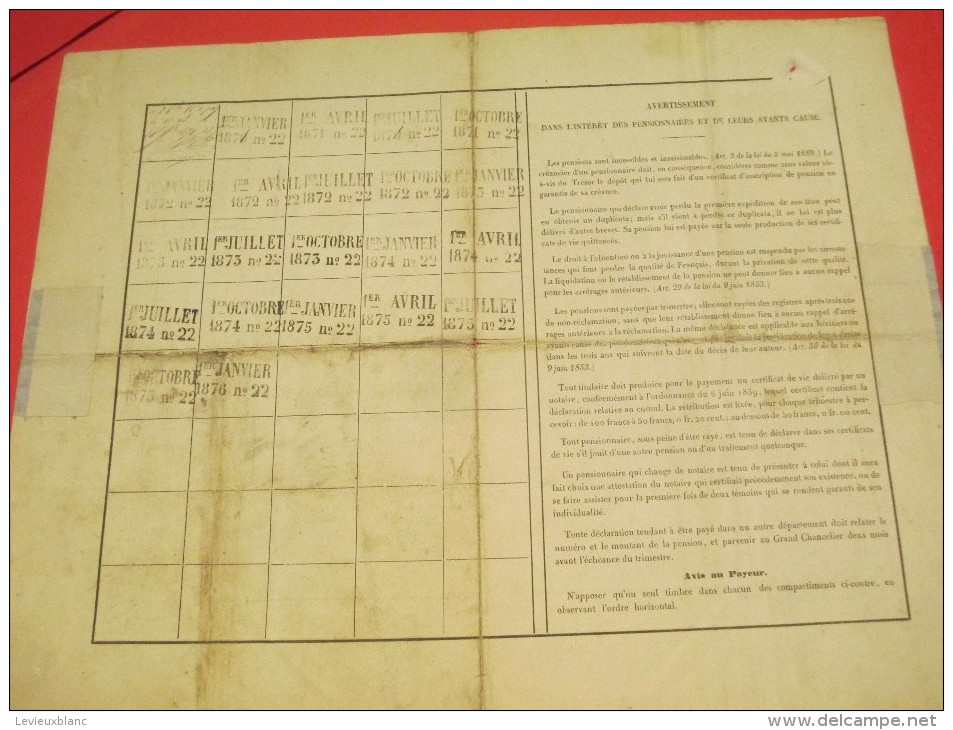 1ER JANVIER
1871 no 22
1ER AVRIL
1871 no 22
1ER JUILLET
1871 no 22
1ER OCTOBRE
1871 no 22
1ER JANVIER
1872 no 22
1ER AVRIL
1872 no 22
1ER JUILLET
1872 no 22
1ER OCTOBRE
1872 no 22
1ER JANVIER
1873 no 22
1ER AVRIL
1873 no 22
1ER JUILLET
1873 no 22
1ER OCTOBRE
1873 no 22
1ER JANVIER
1874 no 22
1ER AVRIL
1874 no 22
1ER JUILLET
1874 no 22
1ER OCTOBRE
1874 no 22
1ER JANVIER
1875 no 22
1ER AVRIL
1875 no 22
1ER JUILLET
1875 no 22
1ER OCTOBRE
1875 no 22
1ER JANVIER
1876 no 22
AVERTISSEMENT
DANS L'INTÉRÊT DES PENSIONNAIRES ET DE LEURS AYANTS CAUSE.
Les pensions sont incessibles et insaisissables. (Art. 2 de la loi du mai.) Le
créancier d'un pensionnaire doit, en conséquence, considérer comme sans valeur vis-
à-vis du Trésor le dépôt qui lui sera fait d'un certificat d'inscription de pension en
garantie de sa créance.
Le pensionnaire qui déclare avoir perdu la première expédition de son titre peut
en obtenir un duplicata; mais s'il vient à perdre ce duplicata, il ne lui est plus
délivré d'autre brevet. Sa pension lui est payée sur la seule production de ses certifi-
cats de vie quittancés.
Le droit à l'obtention ou à la jouissance d'une pension est suspendu par les circons-
tances qui font perdre la qualité de Français, durant la privation de cette qualité.
La liquidation ou le rétablissement de la pension ne peut donner lieu à aucun rappel
pour les arrérages antérieurs. (Art. 29 de la loi du 9 juin 1853.)
Les pensions sont payées par trimestre; elles sont rayées des registres après trois ans
de non-réclamation, sans que leur rétablissement donne lieu à aucun rappel d'arré-
rages antérieurs à la réclamation. La même déchéance est applicable aux héritiers ou
ayants cause des pensionnaires la justification de leurs droits
dans les trois ans qui suivront la date du décès de leur auteur. (Art. 30 de la loi du
9 juin 1853.)
Tout titulaire doit produire pour le payement un certificat de vie délivré par un
notaire, conformément à l'ordonnance du 6 juin 1839, lequel certificat contient la
déclaration relative au cumul. La rétribution est fixée, pour chaque trimestre à per-
cevoir: de 100 francs à 50 francs, 0 fr. 20 cent.; au-dessous de 50 francs, 0 fr. 00 cent.
Tout pensionnaire, sous peine d'être rayé, est tenu de déclarer dans ses certificats
de vie s'il jouit d'une autre pension ou d'un traitement quelconque.
Un pensionnaire qui change de notaire est tenu de présenter à celui dont il aura
fait choix une attestation du notaire qui certifiait précédemment son existence, ou de
se faire assister pour la première fois de deux témoins qui se rendent garants de son
individualité.
Toute déclaration tendant à être payé dans un autre département doit relater le
numéro et le montant de la pension, et parvenir au Grand Chancelier deux mois
avant l'échéance du trimestre.
Avis au Payeur.
N'apposer qu'un seul timbre dans chacun des compartiments ci-contre, en
observant l'ordre horizontal.
Levieuxblanc
www.delcampe.net